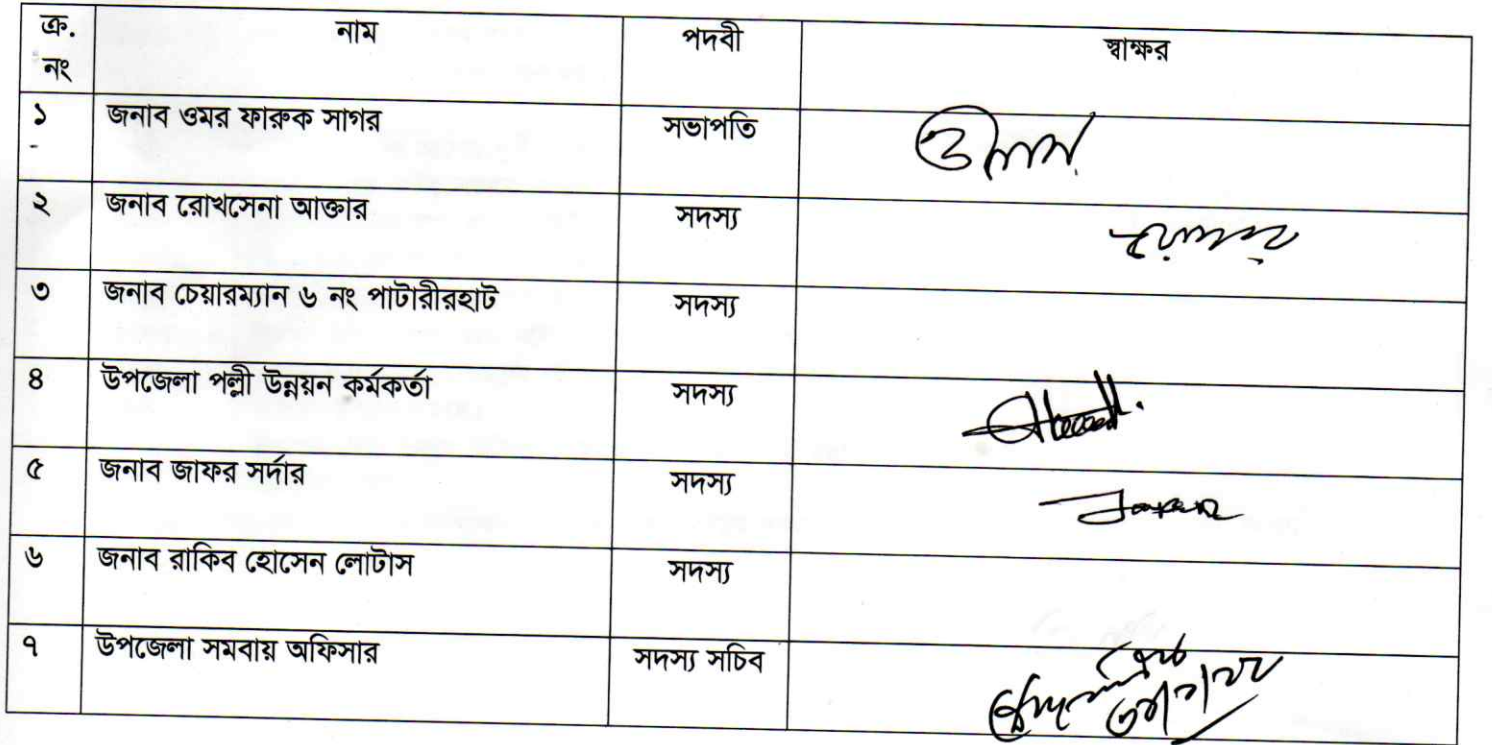 ক্র. নাম পদবী স্বাক্ষর
নং
১ জনাব ওমর ফারুক সাগর সভাপতি
২ জনাব রোখসেনা আক্তার সদস্য
৩ জনাব চেয়ারম্যান ৬ নং পাটারীরহাট সদস্য
৪ উপজেলা পল্লী উন্নয়ন কর্মকর্তা সদস্য
৫ জনাব জাফর সর্দার সদস্য
৬ জনাব রাকিব হোসেন লোটাস সদস্য
৭ উপজেলা সমবায় অফিসার সদস্য সচিব